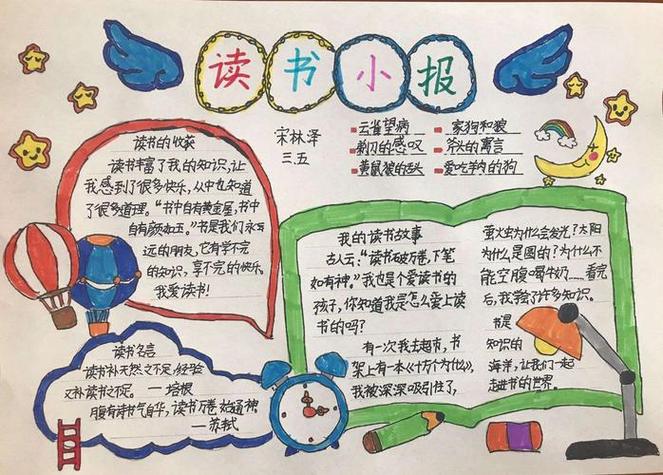 读书小报
宋林泽
三.五
云雀望病
家狗和狼
剃刀的感叹
斧头的寓言
黄鼠狼的
爱吃羊肉的狗
读书的收获
读书丰富了我的知识,让
我感到了很多快乐,从中也知道
了很多道理。“书中自有黄金屋,书中
自有颜如玉。”书是我们永
远的朋友,它有学不完
的知识,享不完的快乐。
我爱读书!
读书名言
读书补天然之不足,经验
又补读书之不足。——培根
腹有诗书气自华,读书万卷始通神
—苏轼
我的读书故事
古人云:“读书破万卷,下笔
如有神。”我也是个爱读书的
孩子,你知道我是怎么爱上读
书的吗?
有一次我去超市,书
架上有一本《十万个为什么》,
我被深深吸引住了,
萤火虫为什么会发光?太阳
为什么是圆的?为什么不
能空腹喝牛奶……看完
后,我学了许多知识。
书是
知识的
海洋,让我们一起
走进书的世界。